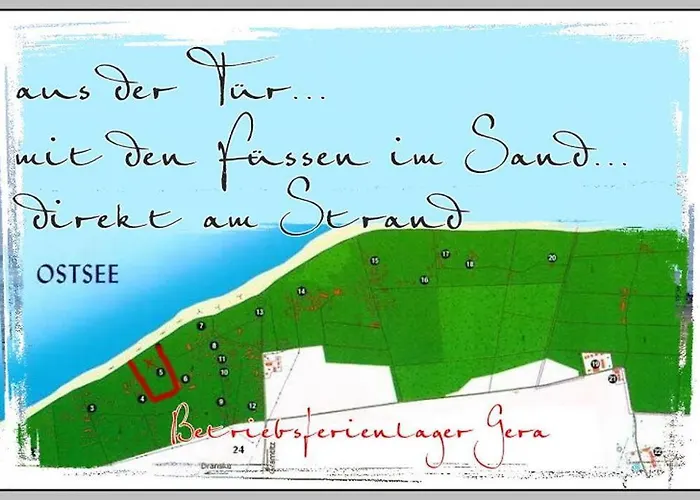 aus der Tür...
mit den Füssen im Sand...
direkt am Strand
OSTSEE
15
17
18
20
16
14
13
7
8
11
10
5
6
4
3
9
12
19
21
22
Betriebsferienlager Gera
24
Dranske